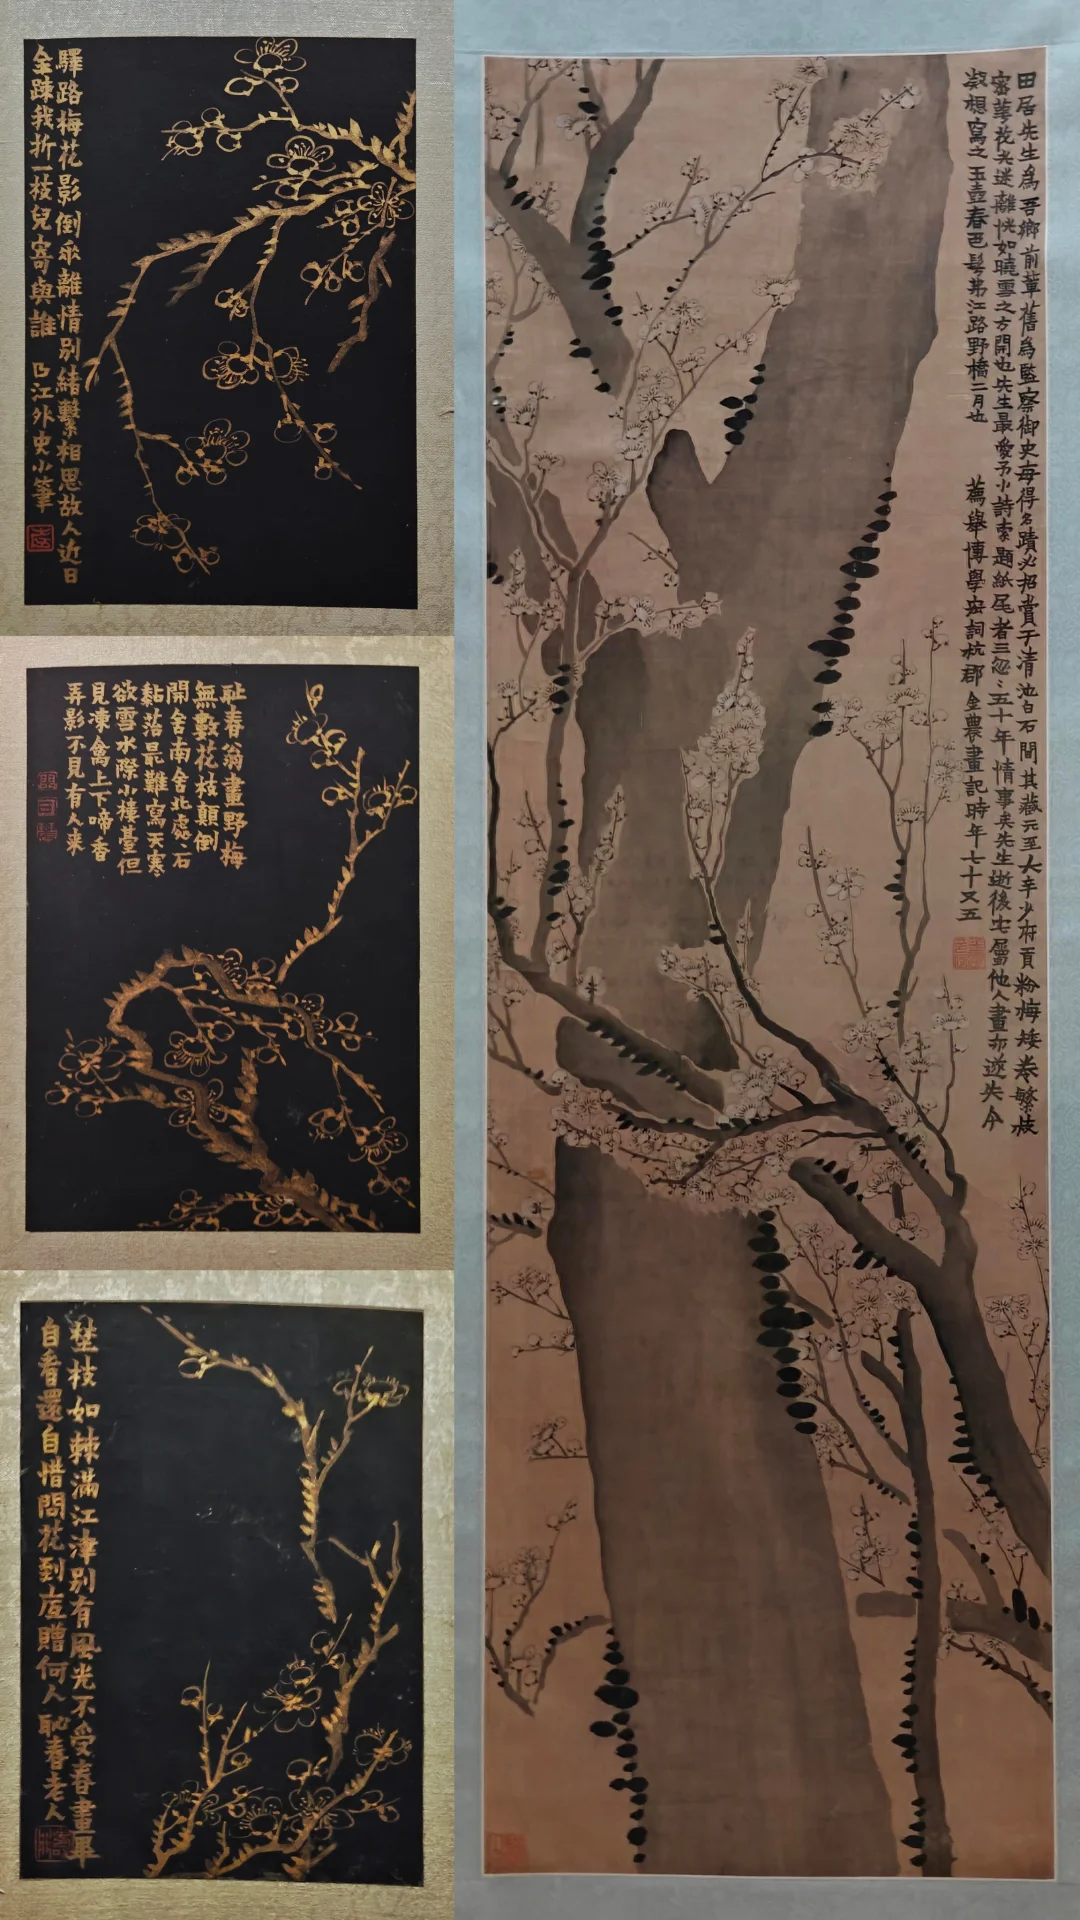 驛路梅花影倒垂離情別緒繫相思故人近日
全疎我折一枝兒寄與誰 曲江外史小筆
耻春翁畫野梅
無數花枝顛倒
開舍南舍北處〻石
黏落最難寫天寒
欲雪水際小樓臺但
見凍禽上下啼香
弄影不見有人来
埜枝如棘滿江津別有風光不受春畫畢
自看還自惜問花到底贈何人 耻春老人
田居先生為吾鄉前輩舊為監察御史每得名蹟必招賞于清池白石間其藏元至大年少府貢粉梅矮卷繁枝
密蕚花光迷離恍如曉雪之方開也先生最愛予小詩索題紙尾者三忽〻五十年情事矣先生逝後宅屬他人畫亦遂失今
凝想寫之玉壺春色髣髴江路野橋二月也 薦舉博學宏詞杭郡金農畫記時年七十又五